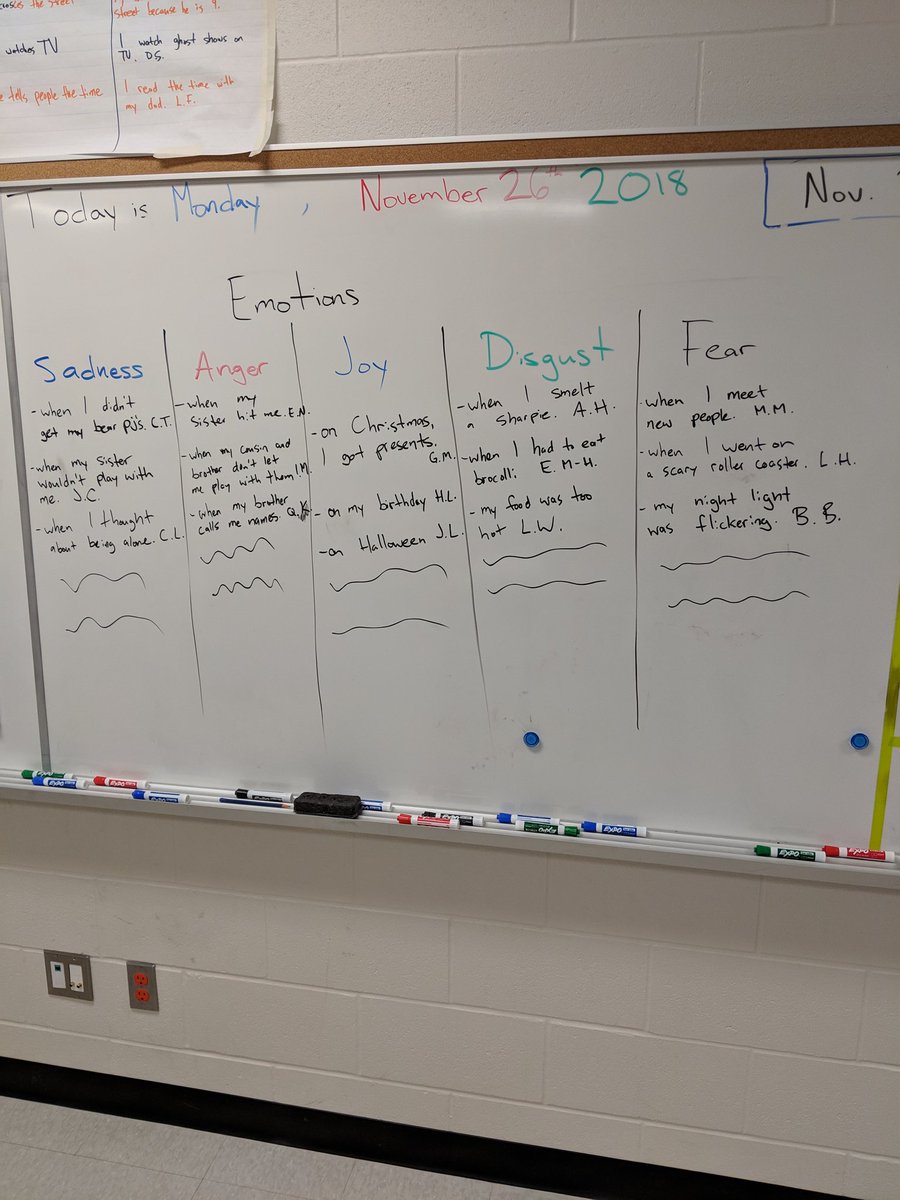 street because he is 9.
watches TV
I watch ghost shows on
TV. D.S.
tells people the time
I read the time with
my dad. L.F.
Today is Monday, November 26th 2018
Nov.
Emotions
Sadness
- when I didn't
get my bear PJ's. C.T.
- when my sister
wouldn't play with
me. J.C.
- when I thought
about being alone. C.L.
Anger
- when my
Sister hit me. E.N.
- when my cousin and
brother don't let
me play with them! M
- when my brother
calls me names. Q.K
Joy
- on Christmas,
I got presents.
G.M.
- on my birthday H.L.
- on Halloween J.L.
Disgust
- when I smelt
a sharpie. A.H.
- when I had to eat
brocolli. E.M-H.
- my food was too
hot L.W.
Fear
- when I meet
new people. M.M.
- when I went on
a scary roller coaster. L.H.
- my night light
was flickering. B.B.
EXPO
EXPO
EXPO
EXPO